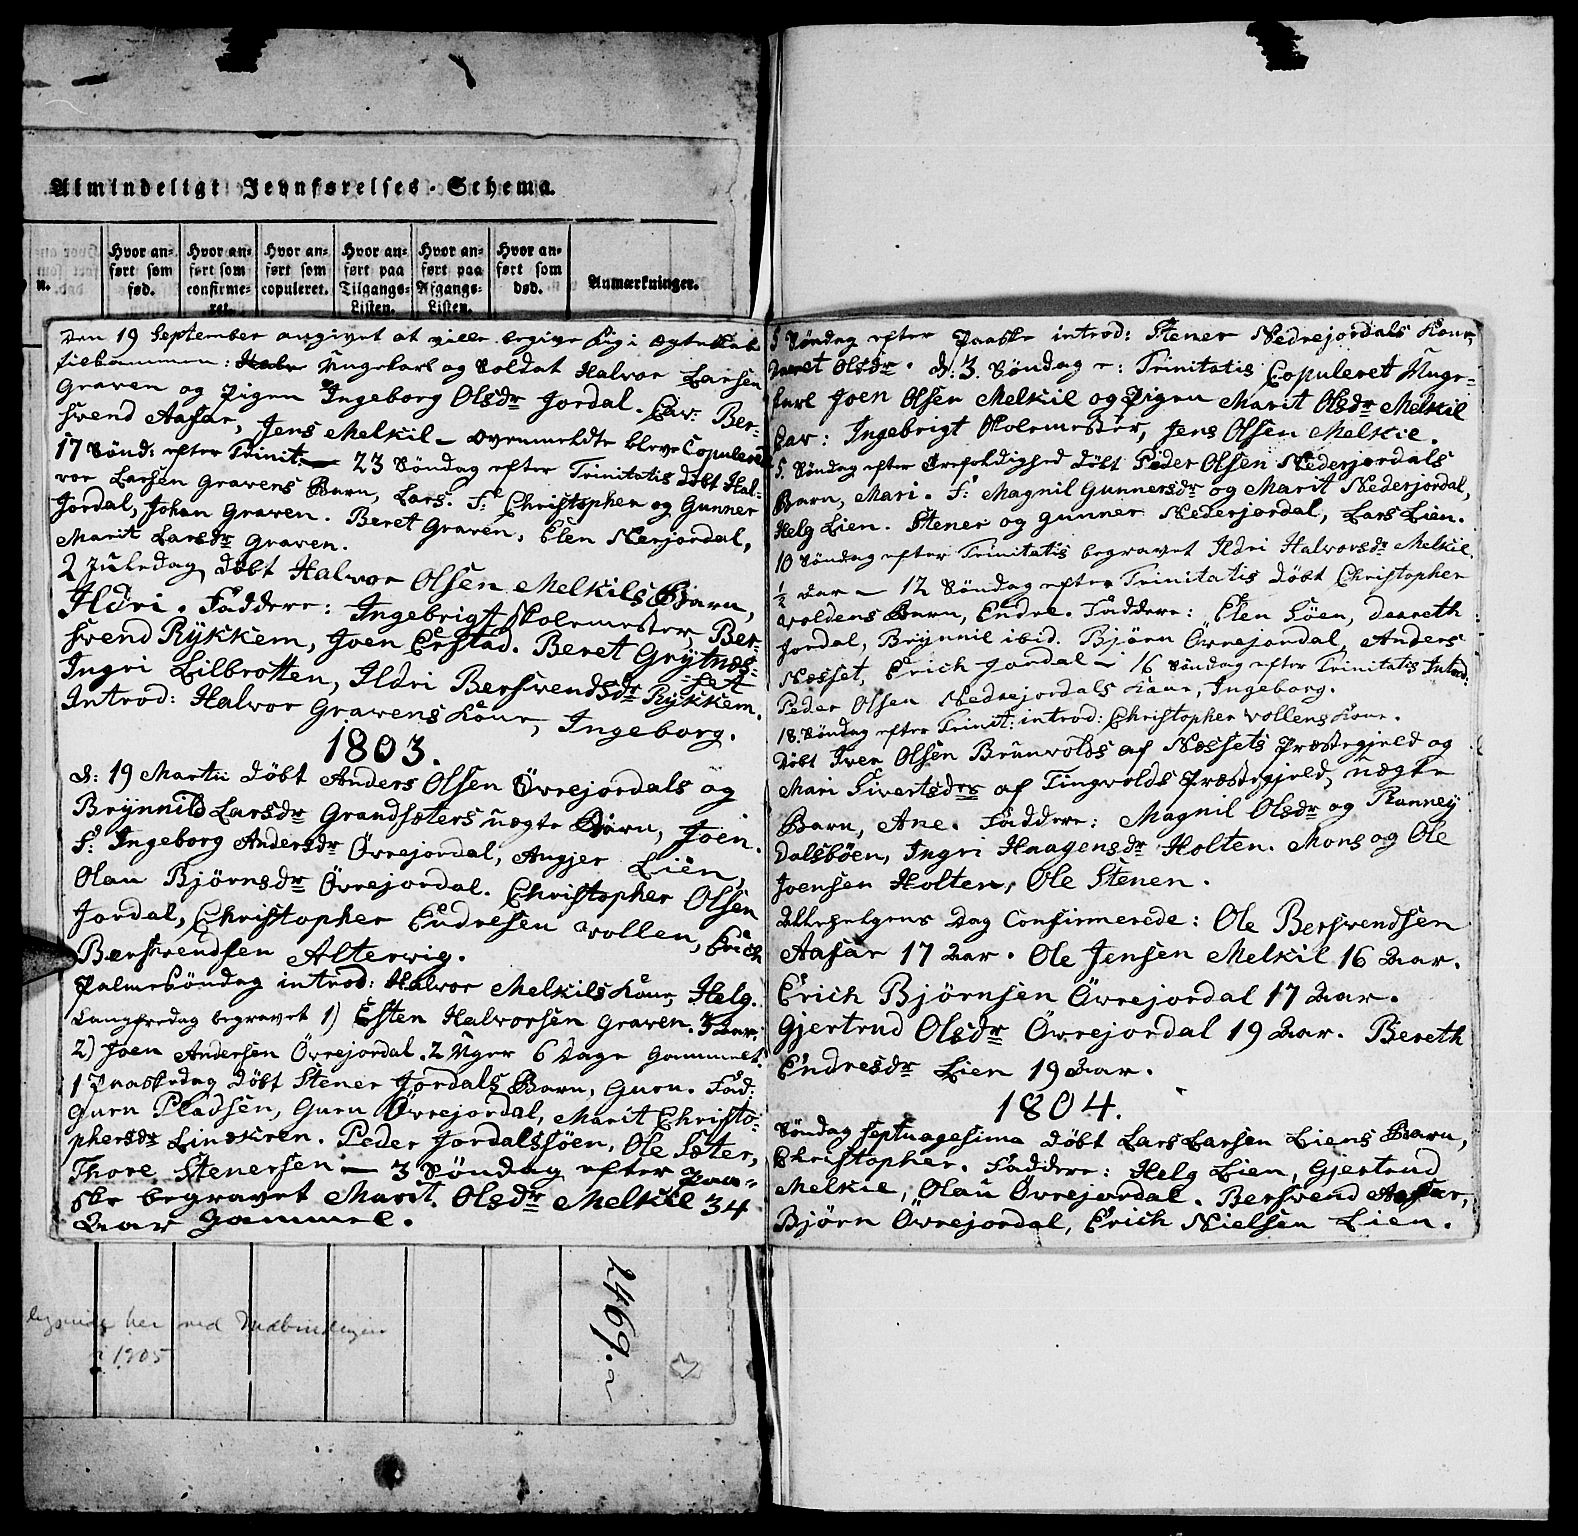 Almindeligt Jevnførelses-Schema.
n.
Hvor an=
ført som
fød.
Hvor an=
ført som
confirme=
ret.
Hvor an=
ført som
copuleret.
Hvor an=
ført paa
Tilgangs=
Listen.
Hvor an=
ført paa
Afgangs=
Listen.
Hvor an=
ført som
død.
Anmærkninger.
Den 19 September angivet at ville begive sig i Ægteskab
Halvor Larsen
Graven og Pigen Ingeborg Olsdr Jordal. Cav: Ber-
svend Aafar, Jens Melkil — Ovenmeldte bleve Copuleret
17 Sønd: efter Trinit: — 23 Søndag efter Trinitatis døbt Hal-
vor Larsen Gravens Barn, Lars. F: Christopher og Gunner
Jordal, Johan Graven. Beret Graven, Elen Nerjordal,
Marit Larsdr Graven.
2 Juledag døbt Halvor Olsen Melkils Barn,
Ildri. Faddere: Ingebrigt Skolemester Ber-
svend Rykkem, Joen Erstad. Beret Grytnæs-
set
Ingri Lilbrotten, Ildri Bersvendsdr Rykkem.
Introd: Halvor Gravens Kone, Ingeborg.
1803.
D: 19 Martii døbt Anders Olsen Øvrejordals og
Brynnild Larsdr Grandsæters uægte Barn, Joen.
F: Ingeborg Andersdr Øvrejordal, Angjer Lien,
Olau Bjørnsdr Øvrejordal. Christopher Olsen
Jordal, Christopher Endresen Vollen, Erich
Bersvendsen Alterwig.
Palmesøndag introd: Halvor Melkils Kone, Helg.
Langfredag begravet 1) Esten Halvorsen Graven. 3 Aar.
2) Joen Andersen Øvrejordal. 2 Uger 6 Dage Gammel.
1 Paaskedag døbt Stener Jordals Barn, Guru. Fad:
Guru Pladsen, Guru Øvrejordal, Marit Christo-
phersdr Linækren. Peder Jordalssøen, Ole Sæter,
Thore Stenersen — 3 Søndag efter Paa-
ske begravet Marit Olsdr Melkil 34
Aar Gammel.
her ved Indbindingen
i 1905
2469.
5 Søndag efter Paaske introd: Stener Nedrejordals Kone,
Maret Olsdr. D: 3. Søndag e: Trinitatis Copuleret Unge-
karl Joen Olsen Melkil og Pigen Marit Olsdr Melkil
Cav: Ingebrigt Skolemester, Jens Olsen Melkil.
5. Søndag efter Trefoldighed døbt Peder Olsen Nederjordals
Barn, Mari. F: Magnil Gunnersdr og Marit Nederjordal,
Helg Lien. Stener og Gunner Nederjordal, Lars Lien.
10 Søndag efter Trinitatis begravet Ildri Halvorsdr Melkil.
½ Aar — 12 Søndag efter Trinitatis døbt Christopher
Voldens Barn, Endre. Faddere: Elen Søen, Dareth
Jordal, Brynnil ibid. Bjørn Øvrejordal, Anders
Næsset, Erich Jordal — 16 Søndag efter Trinitatis Introd:
Peder Olsen Nedrejordals Kone, Ingeborg.
18. Søndag efter Trinit: introd: Christopher Vollens Kone.
Døbt Iver Olsen Brunvolds af Næssets Præstegjeld og
Mari Sivertsdrs af Tingvolds Præstegjeld, uægte
Barn, Ane. Faddere: Magnil Olsdr og Ranney
Dalsbøen, Ingri Haagensdr Holten. Mons og Ole
Joensen Holten, Ole Stenen.
Allehelgens Dag Confirmerede: Ole Bersvendsen
Aafar 17 Aar. Ole Jensen Melkil 16 Aar.
Erich Bjørnsen Øvrejordal 17 Aar.
Gjertrud Olsdr Øvrejordal 19 Aar. Bereth
Endresdr Lien 19 Aar.
1804.
Søndag Septuagesima døbt Lars Larsen Liens Barn,
Christopher. Faddere: Helg Lien, Gjertrud
Melkil, Olau Øvrejordal. Bersvend Aafar,
Bjørn Øvrejordal, Erich Nielsen Lien.